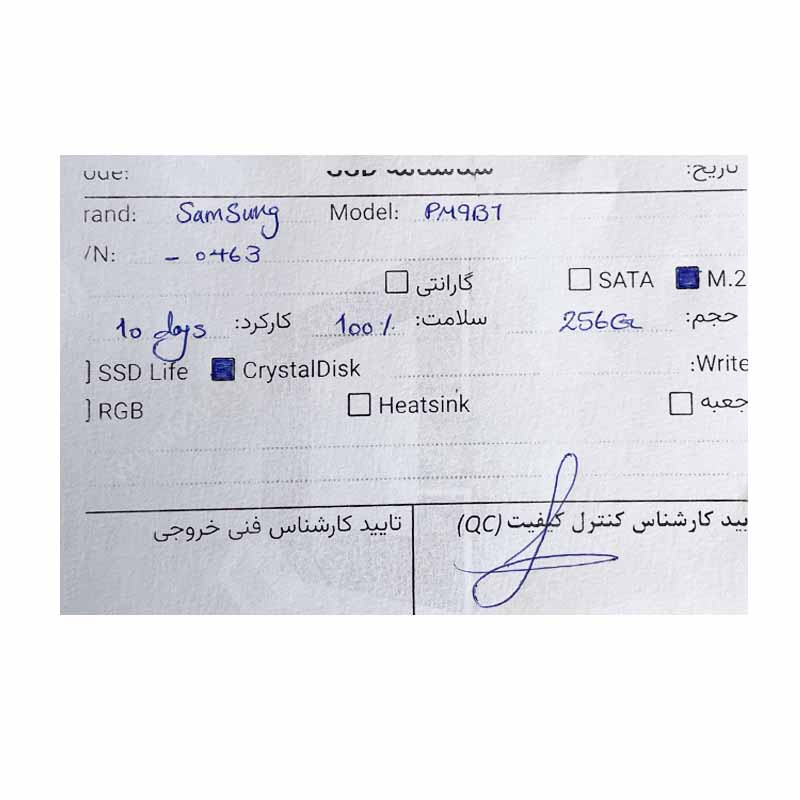 تاریخ:
rand: Samsung Model: PM9B1
/N: - 0463
گارانتی SATA M.2
حجم: 256G سلامت: 100% کارکرد: 10 days
SSD Life CrystalDisk Write:
RGB Heatsink جعبه
یید کارشناس کنترل کیفیت (QC) تایید کارشناس فنی خروجی